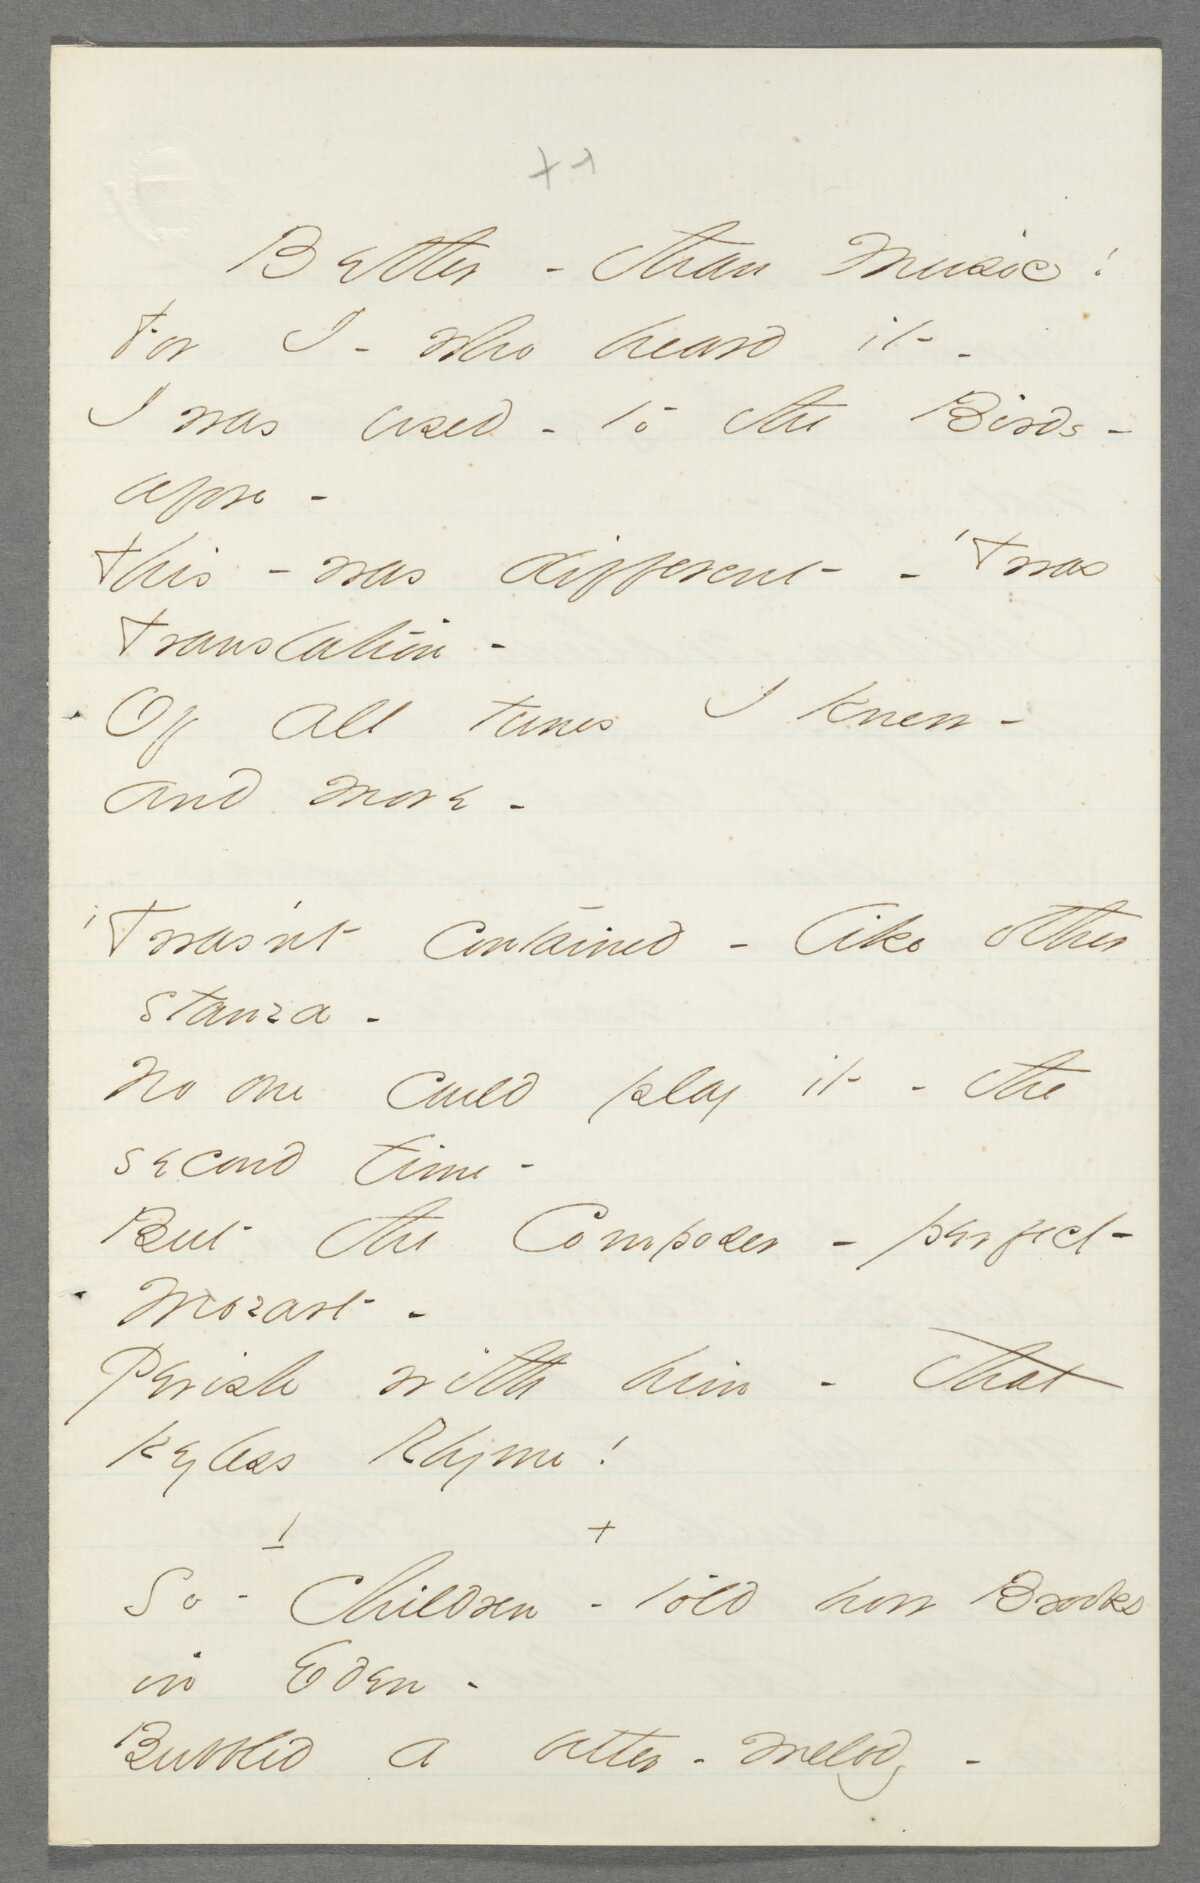 Better - than Music!
For I - who heard it -
I was used - to the Birds -
before -
This - was different - 'Twas
Translation -
Of all tunes I knew -
and more -
'Twas'nt contained - like other
stanza -
No one could play it - the
second time -
But the Composer - perfect
Mozart -
Perish with him - that
keyless Rhyme!
+
So - Children - told how Brooks
in Eden -
Bubbled a better - melody -